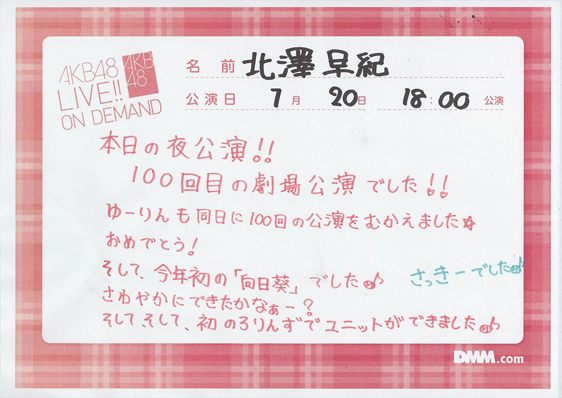 AKB48
LIVE!!
ON DEMAND
AKB
48
名前 北澤早紀
公演日 7月 20日 18:00 公演
本日の夜公演!!
100回目の劇場公演でした!!
ゆーりんも同日に100回の公演をむかえました☆
おめでとう!
そして、今年初の「向日葵」でした♪
さっきーでした♪
さわやかにできたかなぁー?
そしてそして、初のろりんずでユニットができました♪
DMM.com